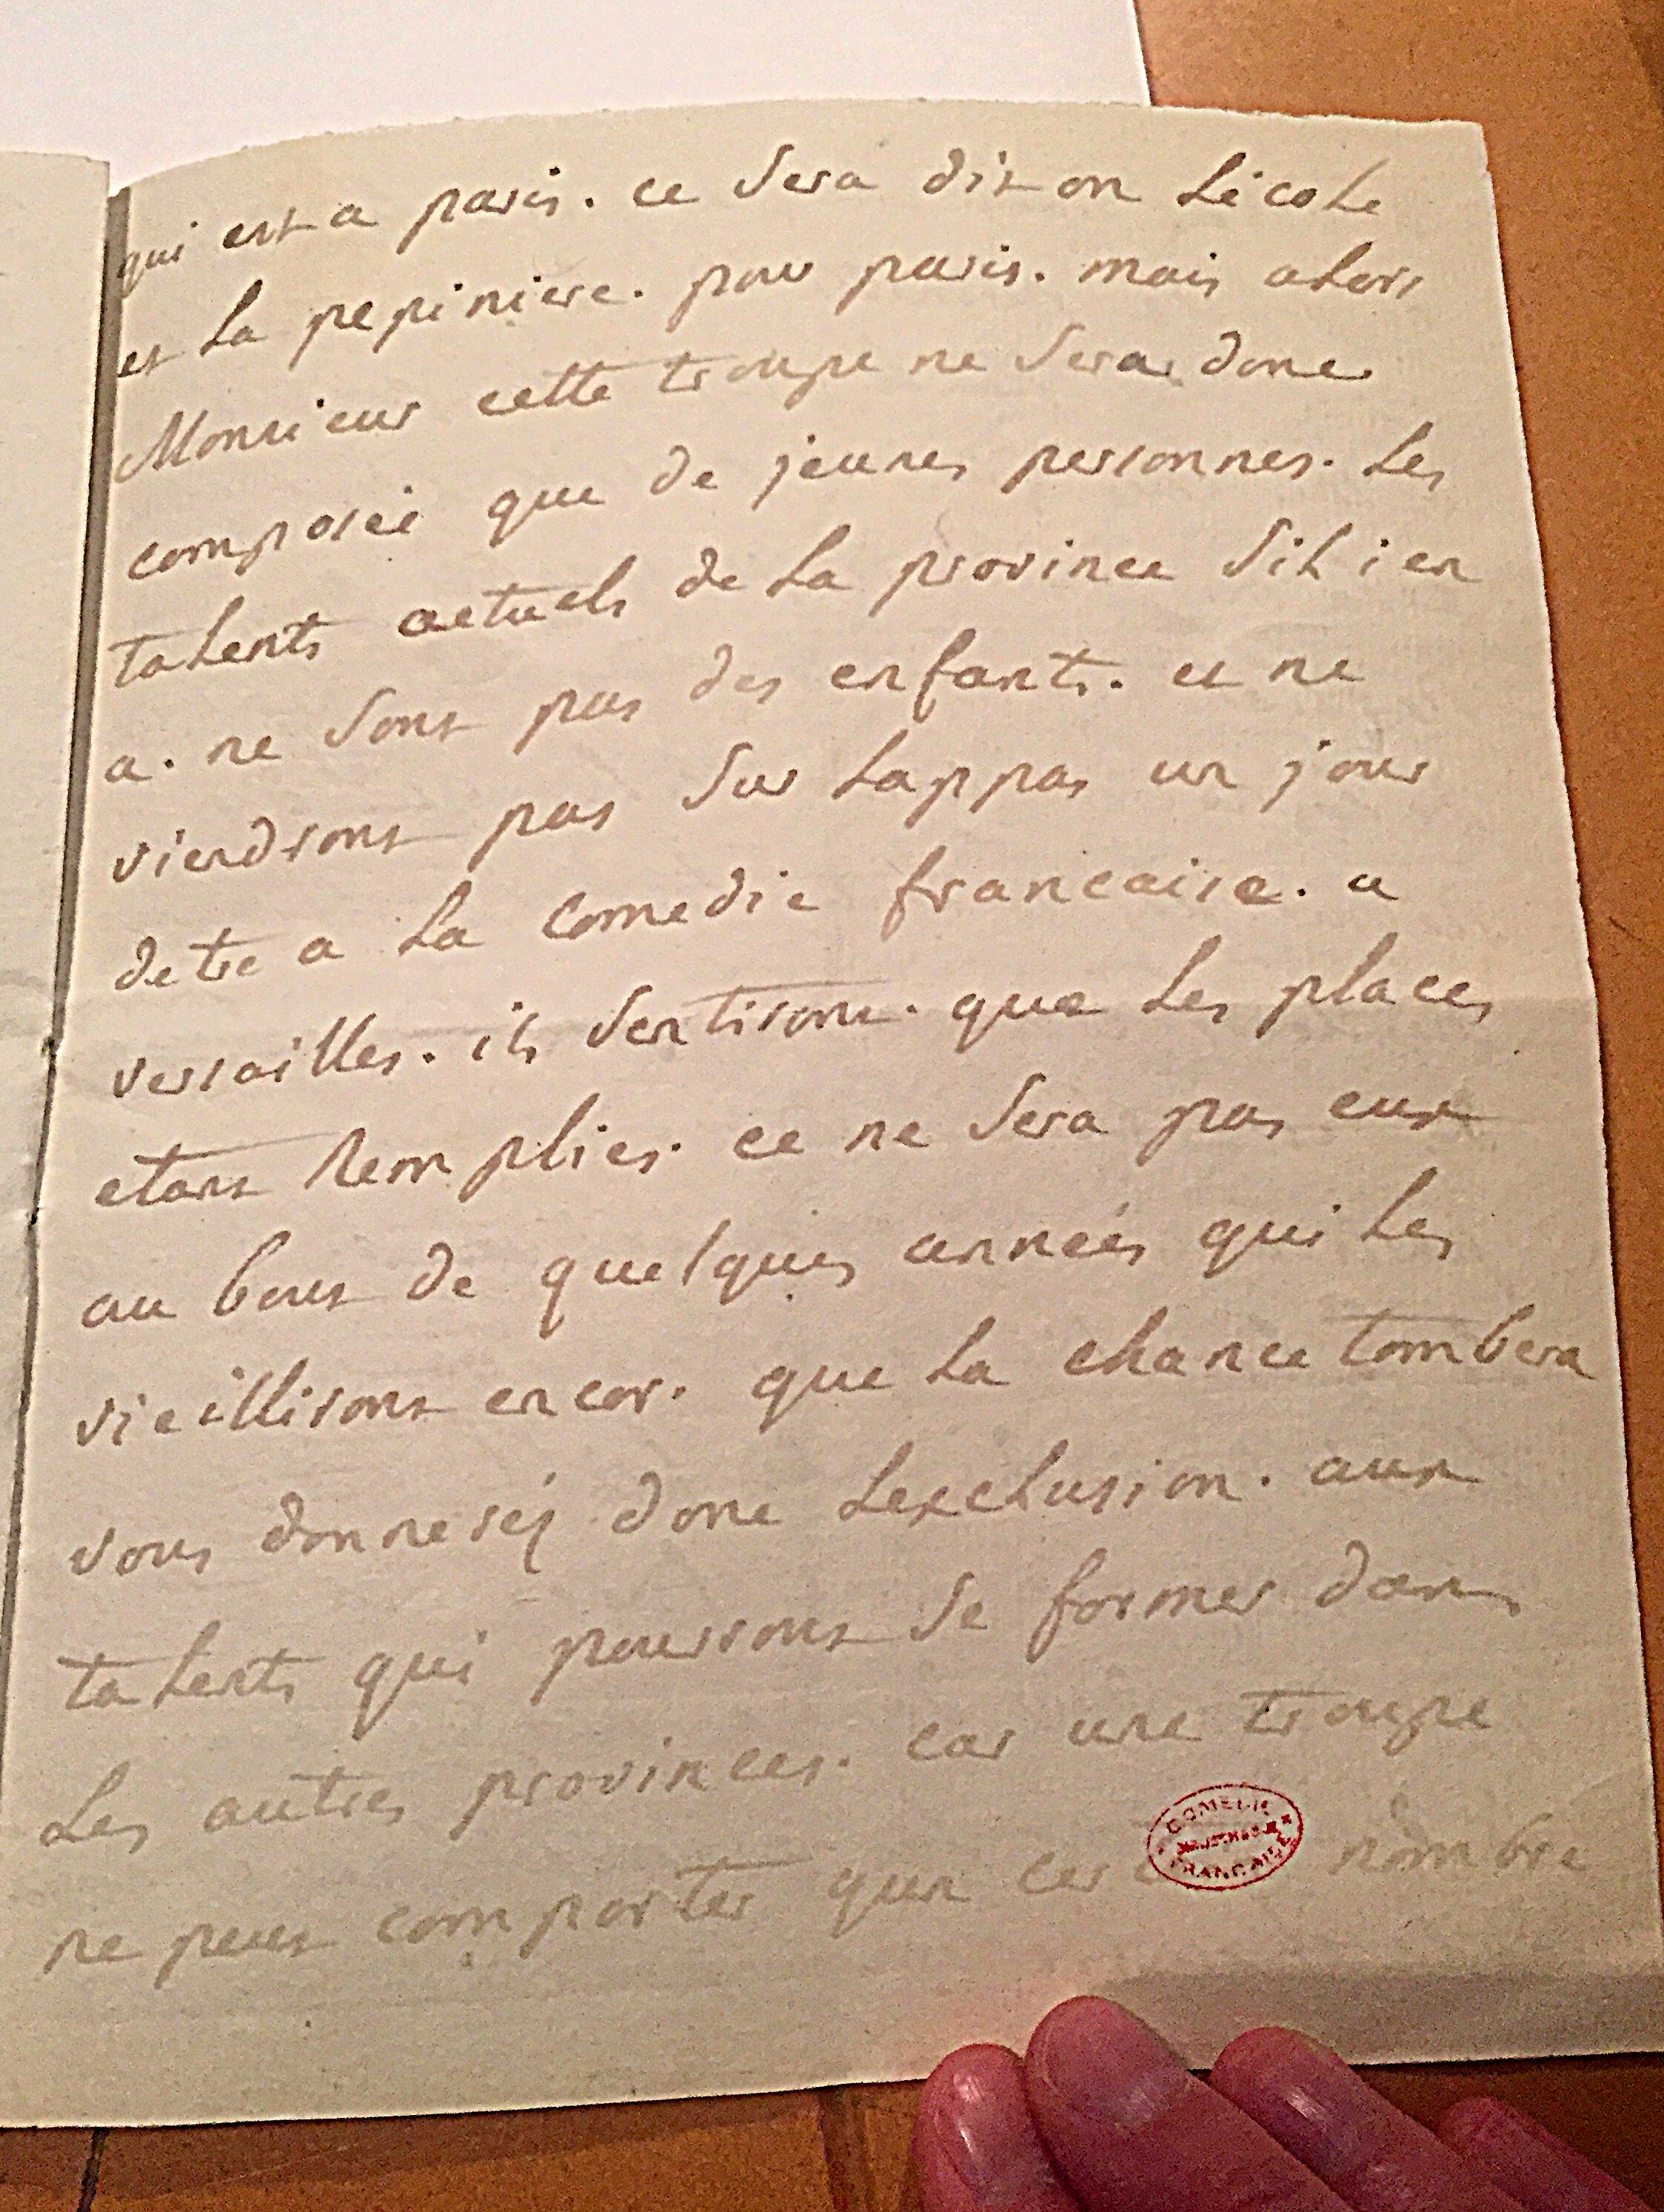 qui est a paris. ce sera dit on Lécole
et La pepiniere. pour paris. mais alors
Monsieur cette troupe ne sera donc
composée que de jeunes personnes. Les
talents actuels de La province sil i en
a. ne sont pas des enfants. ce ne
viendront pas sur Lappas un jour
detre a La comedie francaise. a
versailles. ils sentiront. que Les places
etant remplies. ce ne sera pas eux
au bout de quelques années qui Les
vieilliront encor. que La chance tombera
vous donneréz donc Lexclusion. aux
talents qui pourront se former dans
Les autres provinces. car une troupe
ne peut comporter quun cer nombre
COMEDIE
FRANCAISE